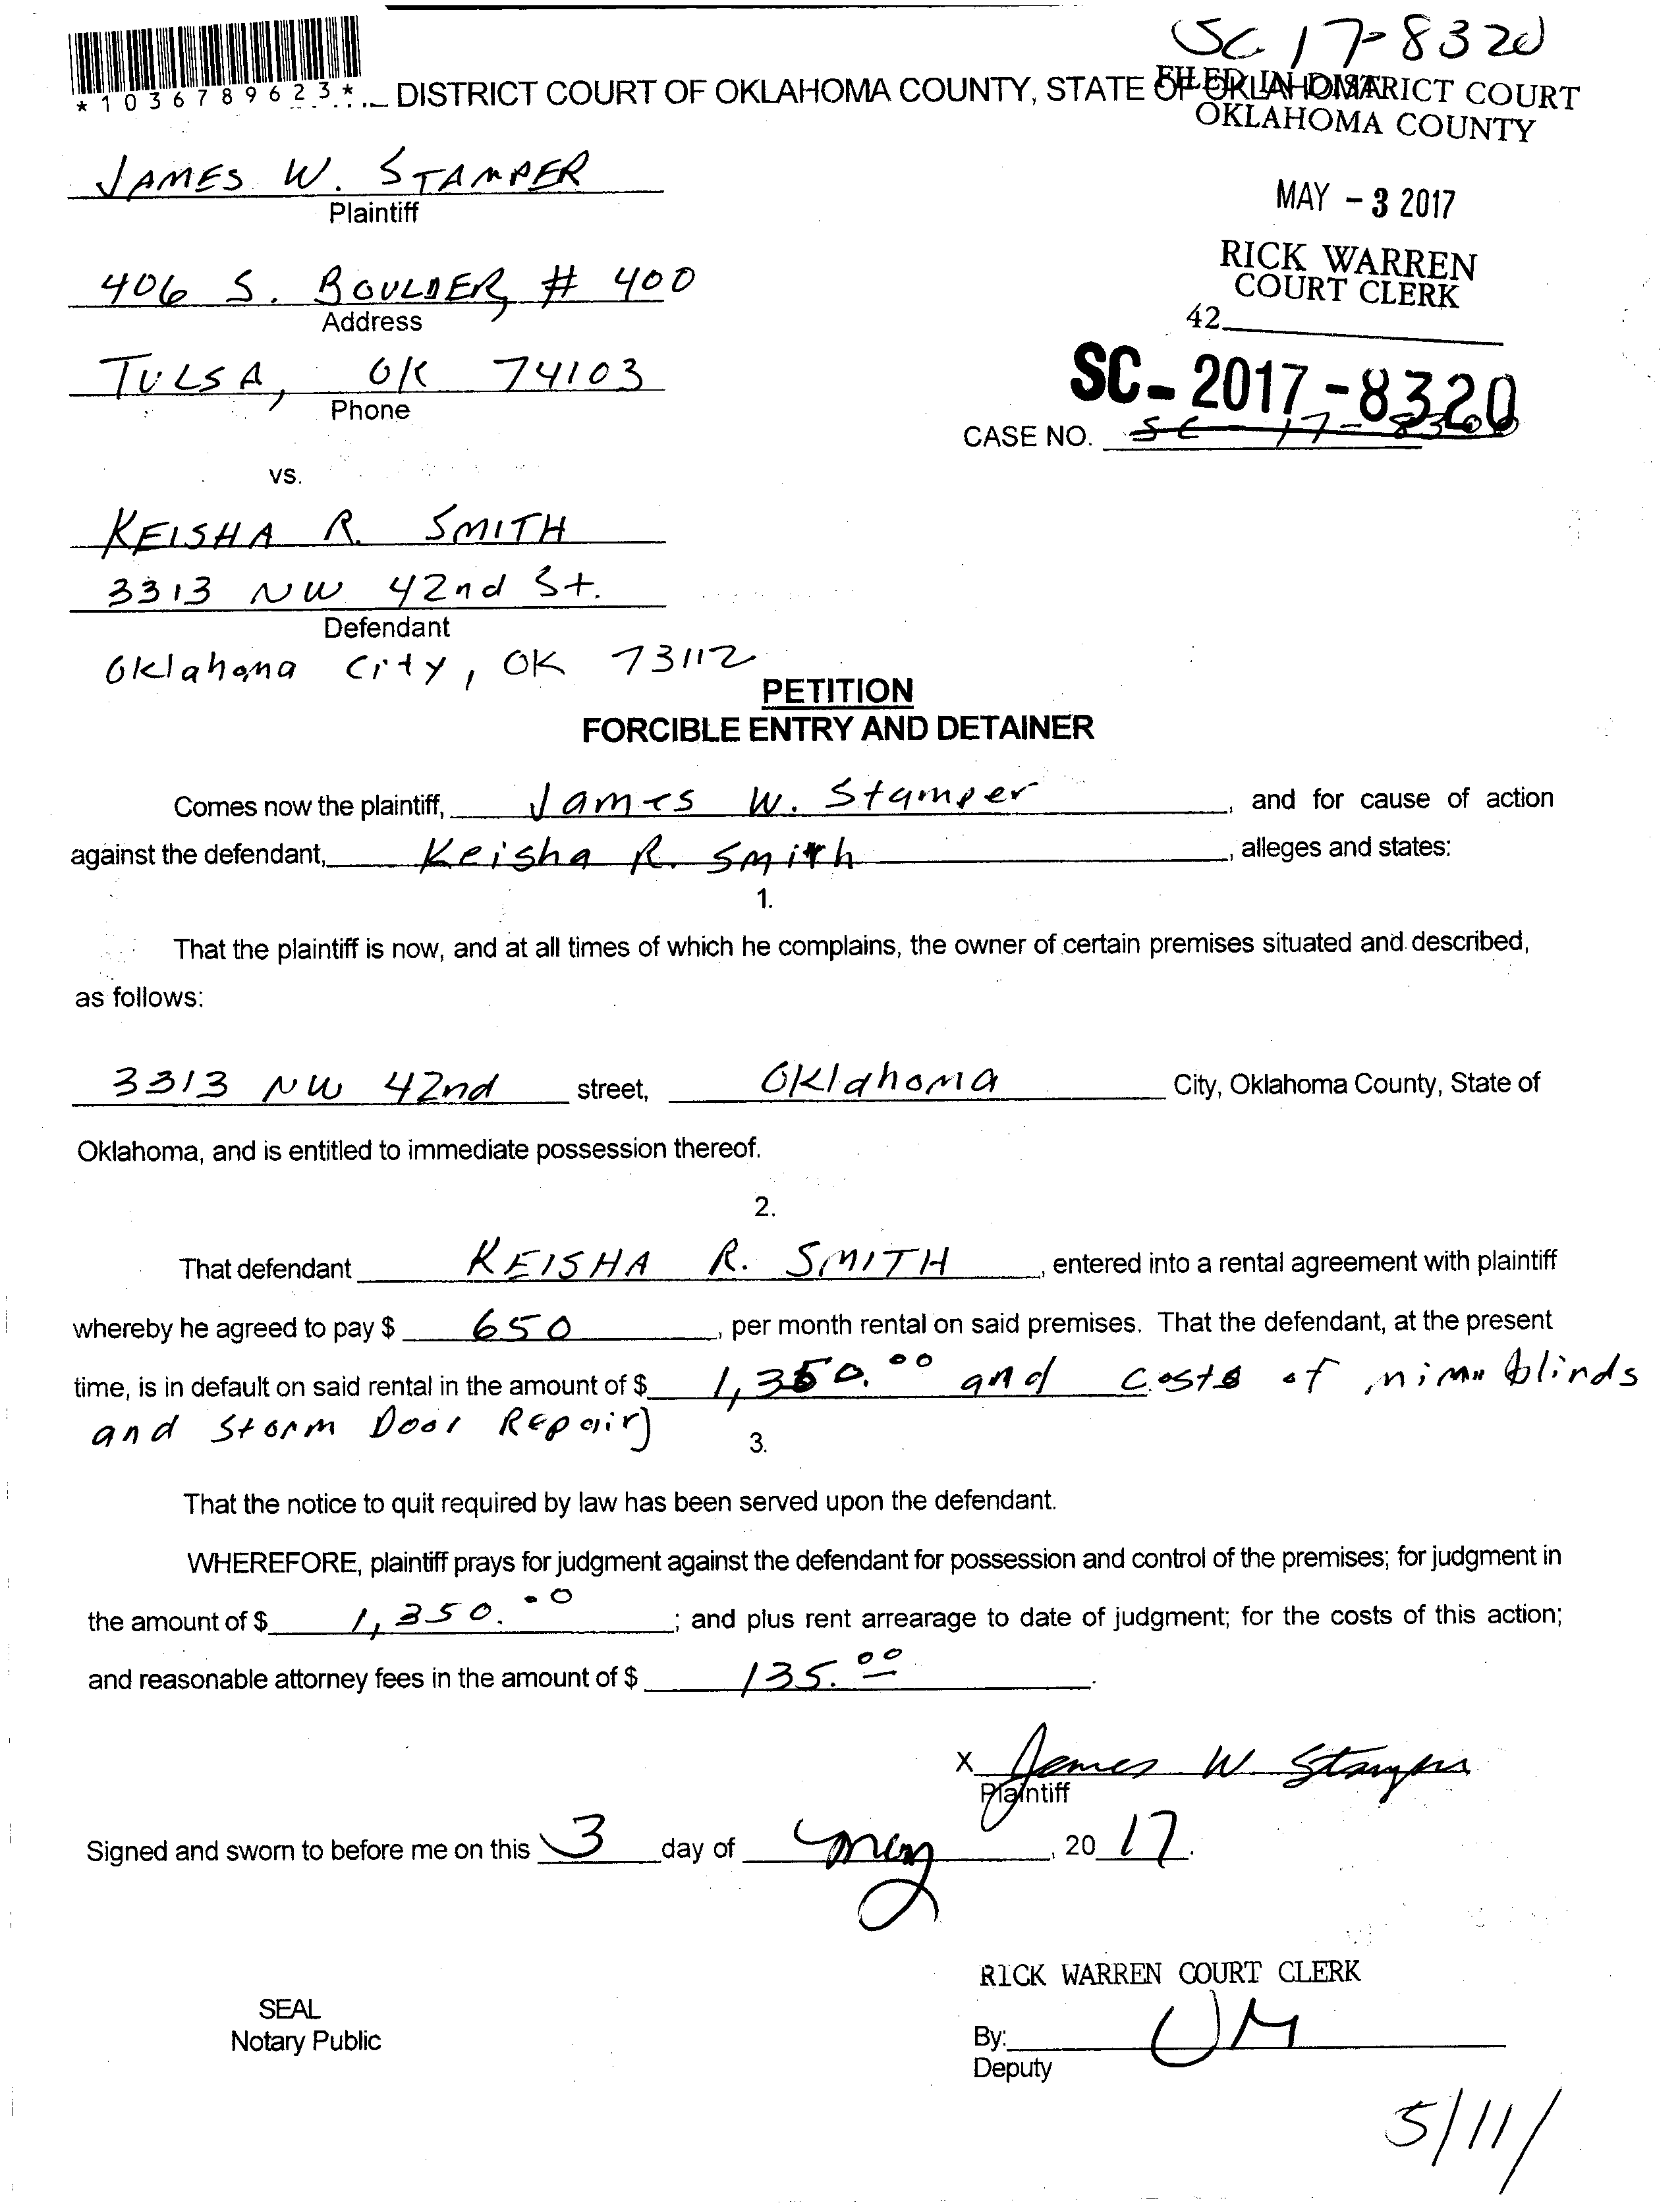 SC 17-8320
*1036789623*
DISTRICT COURT OF OKLAHOMA COUNTY, STATE OF OKLAHOMA
FILED IN DISTRICT COURT
OKLAHOMA COUNTY
JAMES W. STAMPER
Plaintiff
MAY - 3 2017
406 S. BOULDER, # 400
Address
RICK WARREN
COURT CLERK
42
TULSA, OK 74103
Phone
SC - 2017 - 8320
CASE NO. SC - 17 -
vs.
KEISHA R. SMITH
3313 NW 42nd St.
Defendant
Oklahoma City, OK 73112
PETITION
FORCIBLE ENTRY AND DETAINER
Comes now the plaintiff, James W. Stamper, and for cause of action
against the defendant, Keisha R. Smith, alleges and states:
1.
That the plaintiff is now, and at all times of which he complains, the owner of certain premises situated and described,
as follows:
3313 NW 42nd street, Oklahoma City, Oklahoma County, State of
Oklahoma, and is entitled to immediate possession thereof.
2.
That defendant KEISHA R. SMITH, entered into a rental agreement with plaintiff
whereby he agreed to pay $ 650, per month rental on said premises. That the defendant, at the present
time, is in default on said rental in the amount of $ 1,350.00 and costs of mini blinds
and Storm Door Repair]
3.
That the notice to quit required by law has been served upon the defendant.
WHEREFORE, plaintiff prays for judgment against the defendant for possession and control of the premises; for judgment in
the amount of $ 1,350.00; and plus rent arrearage to date of judgment; for the costs of this action;
and reasonable attorney fees in the amount of $ 135.00.
X James W Stamper
Plaintiff
Signed and sworn to before me on this 3 day of May, 20 17.
RICK WARREN COURT CLERK
SEAL
Notary Public
By:
Deputy
5/11/